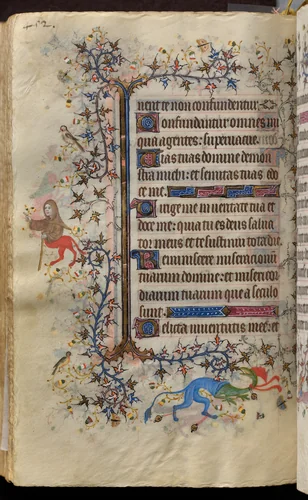 nent te non confundentur.
Confundantur omnes ini
qua agentes: supervacue.
Vias tuas domine demon
stra michi: et semitas tuas do
ce me.
Dirige me in veritate tua et
doce me: quia tu es deus salva
tor meus et te sustinui tota die.
Reminiscere miseracionum
tuarum domine: et misericor
diarum tuarum que a seculo
sunt.
Delicta iuventutis mee et